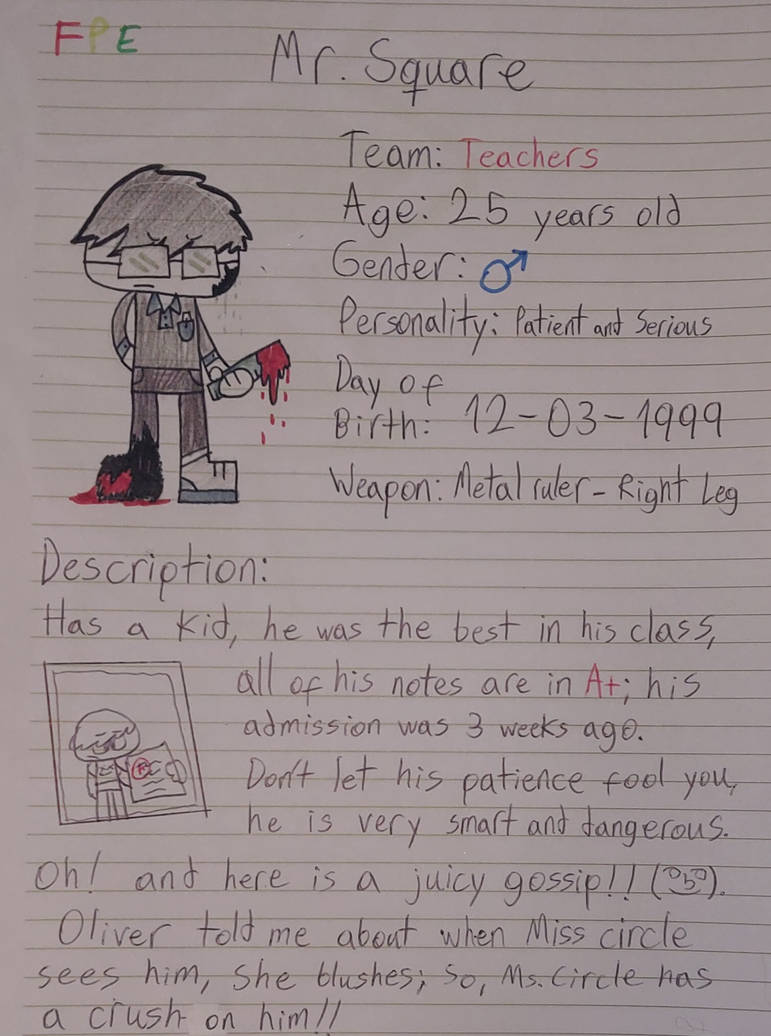 FPE
Mr. Square
Team: Teachers
Age: 25 years old
Gender: ♂
Personality: Patient and Serious
Day of
Birth: 12-03-1999
Weapon: Metal ruler - Right Leg
Description:
Has a kid, he was the best in his class,
all of his notes are in A+; his
admission was 3 weeks ago.
Don't let his patience fool you,
he is very smart and dangerous.
Oh! and here is a juicy gossip!!
Oliver told me about when Miss circle
sees him, She blushes; So, Ms. Circle has
a crush on him!!